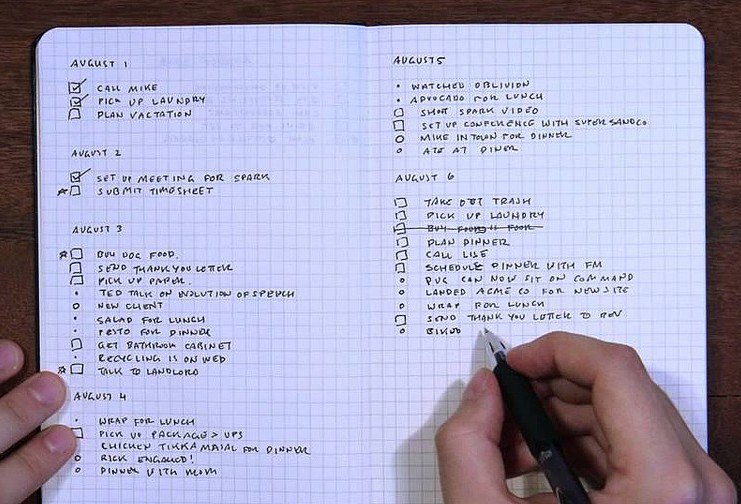 AUGUST 1
CALL MIKE
PICK UP LAUNDRY
PLAN VACTATION
AUGUST 2
SET UP MEETING FOR SPARK
SUBMIT TIMESHEET
AUGUST 3
BUY DOG FOOD.
SEND THANK YOU LETTER
PICK UP PAPER.
TED TALK ON EVOLUTION OF SPEECH
NEW CLIENT
SALAD FOR LUNCH
PESTO FOR DINNER
GET BATHROOM CABINET
RECYCLING IS ON WED
TALK TO LANDLORD
AUGUST 4
WRAP FOR LUNCH
PICK UP PACKAGE > UPS
CHICKEN TIKKA MASAL FOR DINNER
RICK ENGAGED!
DINNER WITH MOM
AUGUST 5
WATCHED OBLIVION
ADVOCADO FOR LUNCH
SHOOT SPARK VIDEO
SET UP CONFERENCE WITH SUPERSANDCO
MIKE IN TOWN FOR DINNER
ATE AT DINER
AUGUST 6
TAKE OUT TRASH
PICK UP LAUNDRY
BUY
PLAN DINNER
CALL LISE
SCHEDULE DINNER WITH FM
PUG CAN NOW SIT ON COMMAND
LANDED ACME CO FOR NEW SITE
WRAP FOR LUNCH
SEND THANK YOU LETTER TO BEV